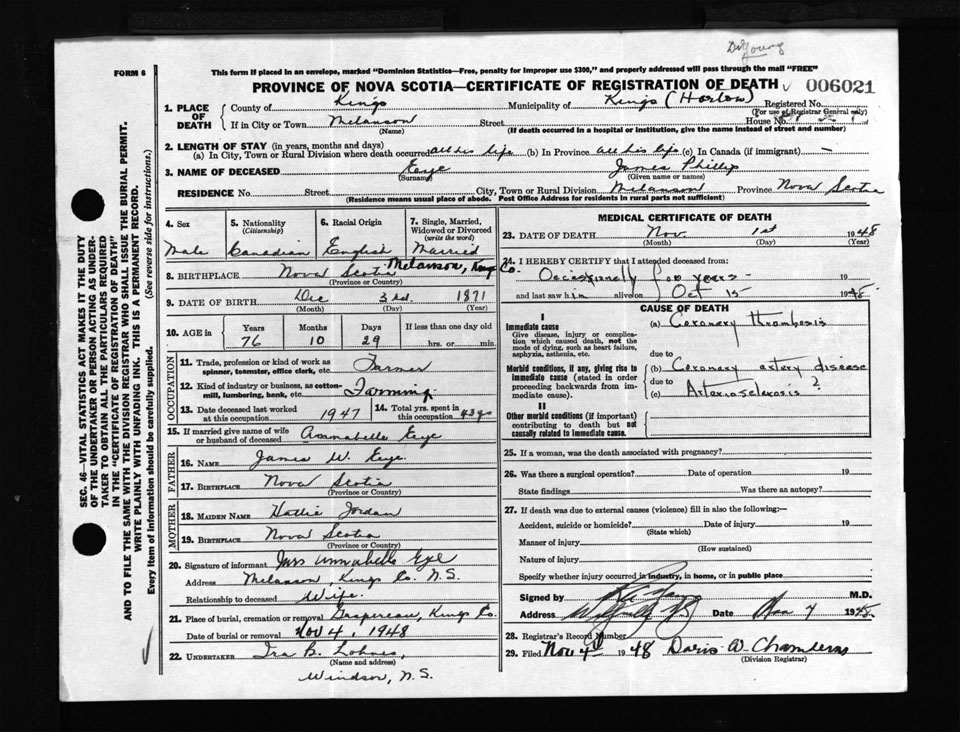 De Young
FORM 6
This form if placed in an envelope, marked "Dominion Statistics—Free, penalty for improper use $300," and properly addressed will pass through the mail "FREE"
PROVINCE OF NOVA SCOTIA—CERTIFICATE OF REGISTRATION OF DEATH 006021
1. PLACE OF DEATH
County of Kings Municipality of Kings (Horton) Registered No.
(For use of Registrar General only)
If in City or Town Melanson Street House No.
(Name) (If death occurred in a hospital or institution, give the name instead of street and number)
2. LENGTH OF STAY (in years, months and days)
(a) In City, Town or Rural Division where death occurred all his life (b) In Province all his life (c) In Canada (if immigrant) —
3. NAME OF DECEASED Eye James Phillip
(Surname) (Given name or names)
RESIDENCE No. Street City, Town or Rural Division Melanson Province Nova Scotia
(Residence means usual place of abode. Post Office Address for residents in rural parts not sufficient)
4. Sex
Male
5. Nationality
(Citizenship)
Canadian
6. Racial Origin
English
7. Single, Married, Widowed or Divorced
(write the word)
Married
8. BIRTHPLACE Nova Scotia Melanson, Kings Co.
(Province or Country)
9. DATE OF BIRTH Dec 3rd 1871
(Month) (Day) (Year)
10. AGE in Years Months Days If less than one day old
76 10 29 hrs. or min.
OCCUPATION
11. Trade, profession or kind of work as spinner, teamster, office clerk, etc. Farmer
12. Kind of industry or business, as cotton-mill, lumbering, bank, etc. Farming
13. Date deceased last worked at this occupation 1947 14. Total yrs. spent in this occupation 43 yrs
15. If married give name of wife or husband of deceased Annabelle Eye
FATHER
16. NAME James W. Eye
17. BIRTHPLACE Nova Scotia
(Province or Country)
MOTHER
18. MAIDEN NAME Hattie Jordan
19. BIRTHPLACE Nova Scotia
(Province or Country)
20. Signature of informant Mrs Annabelle Eye
Address Melanson, Kings Co. N.S.
Relationship to deceased Wife.
21. Place of burial, cremation or removal Kings Co.
Date of burial or removal Nov 4, 1948
22. UNDERTAKER Ira B. Lohnes,
(Name and address)
Windsor, N.S.
MEDICAL CERTIFICATE OF DEATH
23. DATE OF DEATH Nov. 1st 1948
(Month) (Day) (Year)
24. I HEREBY CERTIFY that I attended deceased from:
Occasionally for years - 19
and last saw him alive on Oct 15 1948
CAUSE OF DEATH
I
Immediate cause
Give disease, injury or complication which caused death, not the mode of dying, such as heart failure, asphyxia, asthenia, etc.
(a) Coronary thrombosis
due to
Morbid conditions, if any, giving rise to immediate cause (stated in order proceeding backwards from immediate cause).
(b) Coronary artery disease
due to
(c) Arteriosclerosis ?
II
Other morbid conditions (if important) contributing to death but not causally related to immediate cause.
25. If a woman, was the death associated with pregnancy?
26. Was there a surgical operation? Date of operation 19
State findings Was there an autopsy?
27. If death was due to external causes (violence) fill in also the following:—
Accident, suicide or homicide? Date of injury 19
(State which)
Manner of injury
(How sustained)
Nature of injury
Specify whether injury occurred in industry, in home, or in public place
Signed by M.D.
Address Wolfville NS Date Nov 4 1948
28. Registrar's Record Number
29. Filed Nov 4th 1948 Doris W. Chambers
(Division Registrar)
SEC. 46—VITAL STATISTICS ACT MAKES IT THE DUTY OF THE UNDERTAKER OR PERSON ACTING AS UNDERTAKER TO OBTAIN ALL THE PARTICULARS REQUIRED IN THE "CERTIFICATE OF REGISTRATION OF DEATH" AND TO FILE THE SAME WITH THE DIVISION REGISTRAR WHO SHALL ISSUE THE BURIAL PERMIT.
WRITE PLAINLY WITH UNFADING INK. THIS IS A PERMANENT RECORD.
Every item of information should be carefully supplied. (See reverse side for instructions.)